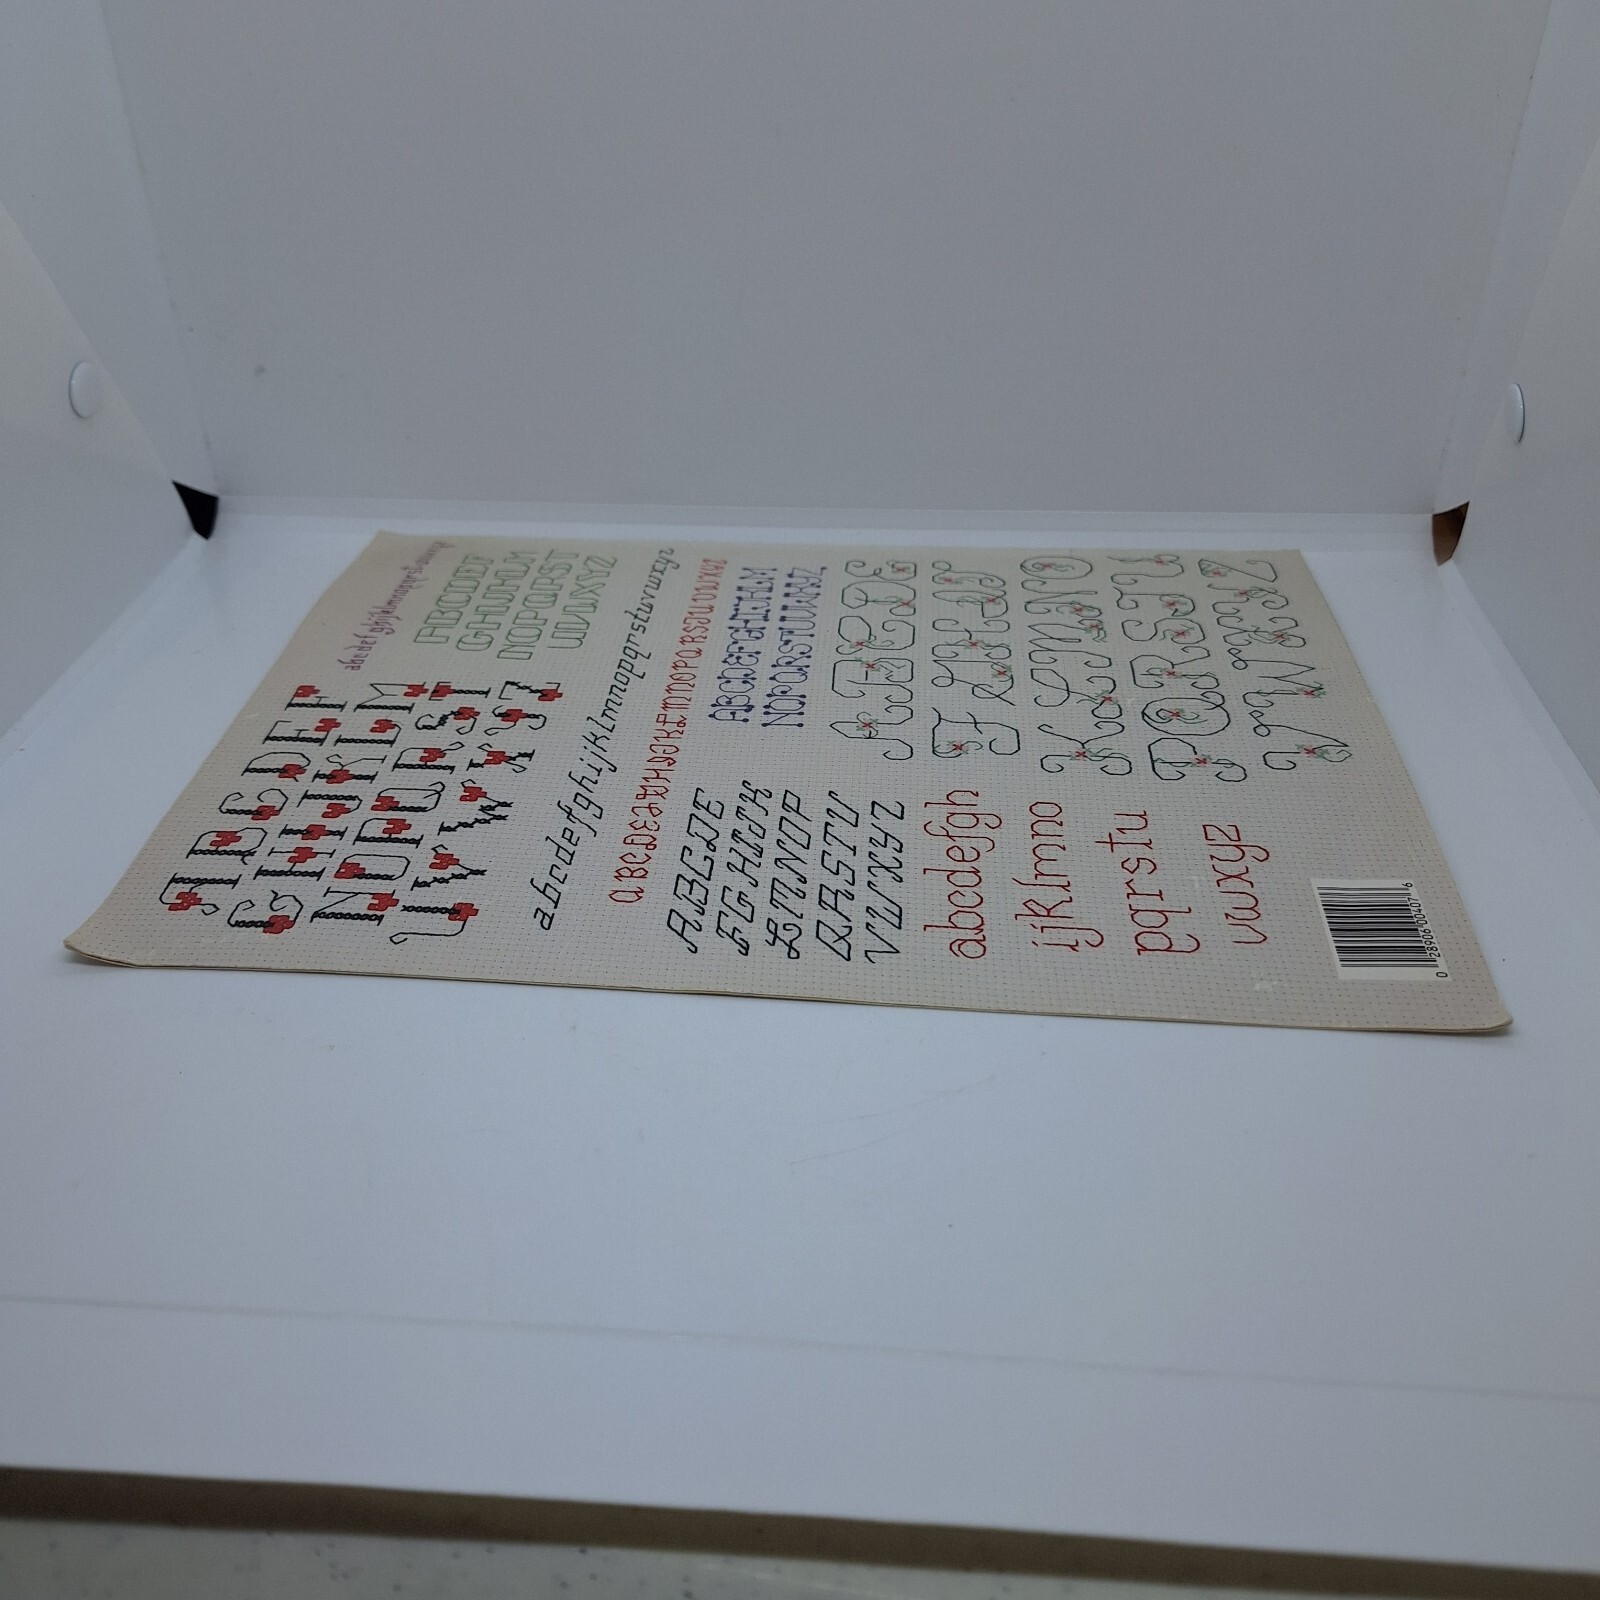 ABCDEF
GHIJKLM
NOPQRST
UVWXYZ
ABCDEF
GHIJKLM
NOPQRST
UVWXYZ
abcdefghijklmnopqrstuvwxyz
abcdefghijklmnopqrstuvwxyz
ABCDEFGHIJKLMNOPQRSTUVWXYZ
ABCDEFGHIJKLM
NOPQRSTUVWXYZ
ABCDE
FGHIJK
LMNOP
QRSTU
VWXYZ
ABCDE
FGHIJ
KLMNO
PQRSTU
VWXYZ
abcdefgh
ijklmno
pqrstu
vwxyz
0 28906 00407 6